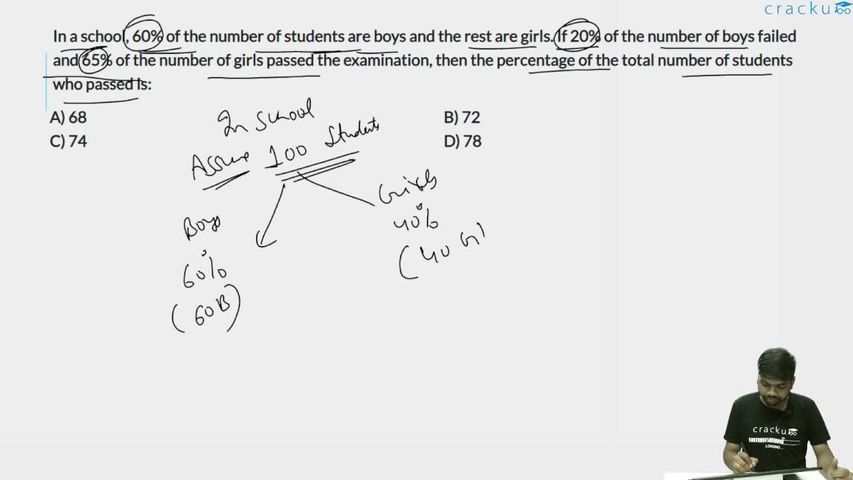 cracku
In a school, 60% of the number of students are boys and the rest are girls. If 20% of the number of boys failed
and 65% of the number of girls passed the examination, then the percentage of the total number of students
who passed is:
A) 68
B) 72
C) 74
D) 78
In School
Assume 100 Students
Boys
Girls
60%
40%
(60B)
(40 G
cracku
LOADING...